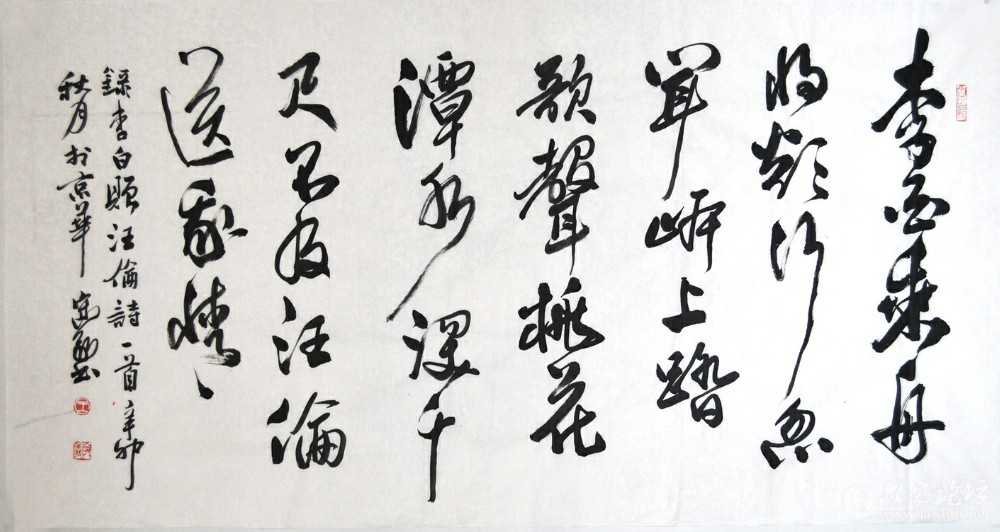 李白乘舟
将欲行忽
聞岸上踏
歌聲桃花
潭水深千
尺不及汪倫
送我情
錄李白贈汪倫詩一首辛卯
秋月於京華